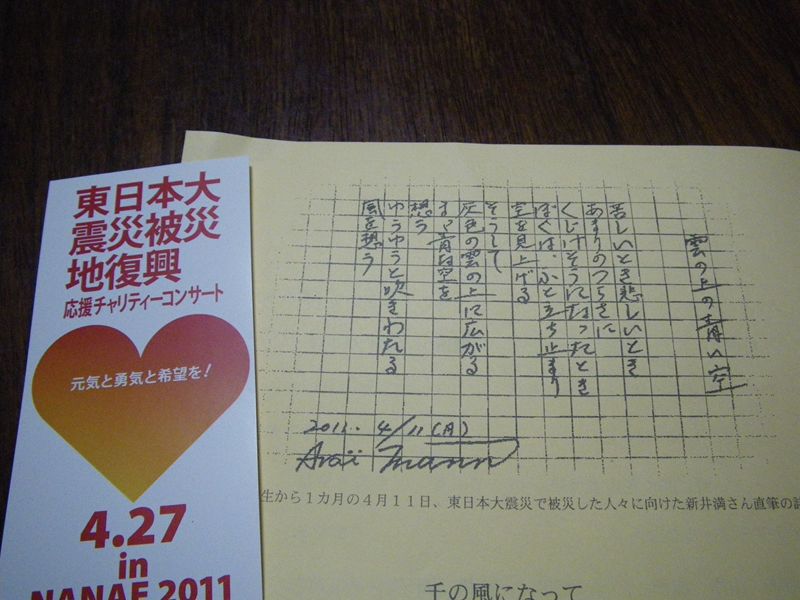 東日本大
震災被災
地復興
応援チャリティーコンサート
元気と勇気と希望を!
4.27
in
NANAE 2011
雲の上の青い空
苦しいとき悲しいとき
あまりのつらさに
くじけそうになったとき
ぼくは、ふと立ち止まり
空を見上げる
そうして
灰色の雲の上に広がる
まっ青な空を
想う
ゆうゆうと吹きわたる
風を想う
2011. 4/11(月)
Arai Mann
生から1カ月の4月11日、東日本大震災で被災した人々に向けた新井満さん直筆の詩
千の風になって